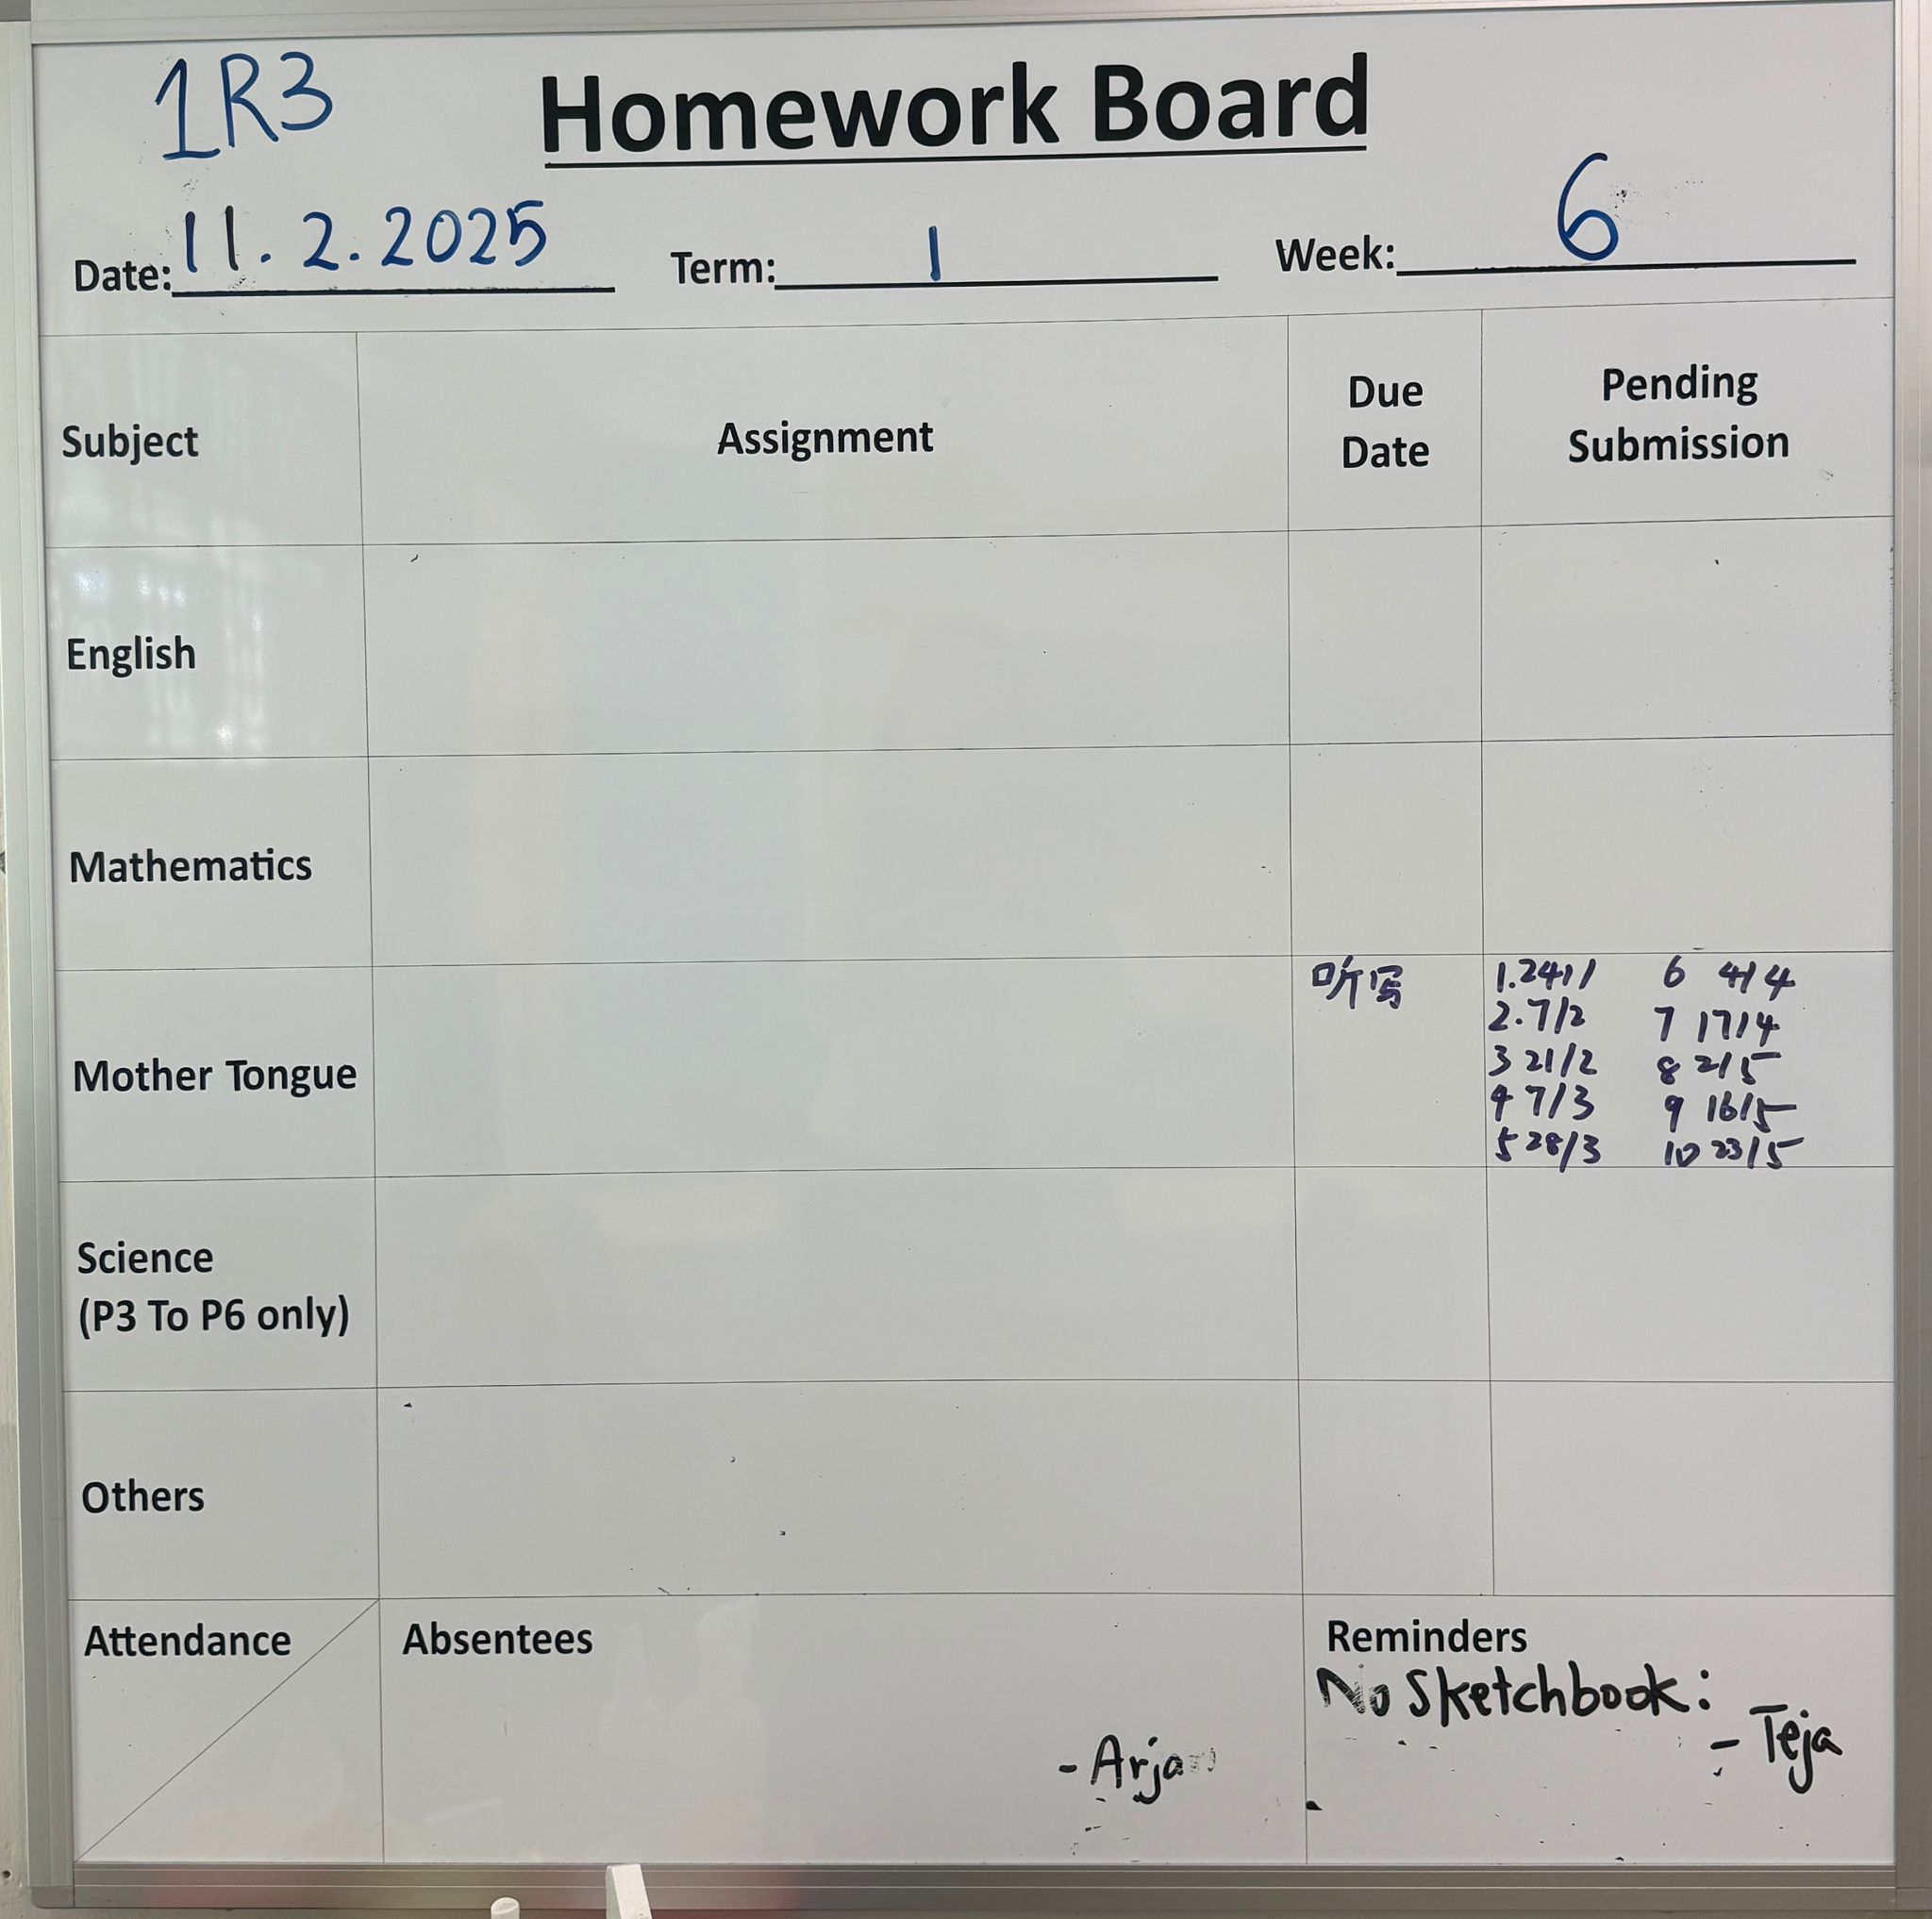 1R3
Homework Board
Date: 11.2.2025 Term: 1 Week: 6
Subject Assignment Due Date Pending Submission
English
Mathematics
Mother Tongue 听写
1. 24/1 6 4/4
2. 7/2 7 17/4
3 21/2 8 2/5
4 7/3 9 16/5
5 28/3 10 23/5
Science
(P3 To P6 only)
Others
Attendance Absentees Reminders
No Sketchbook:
- Teja